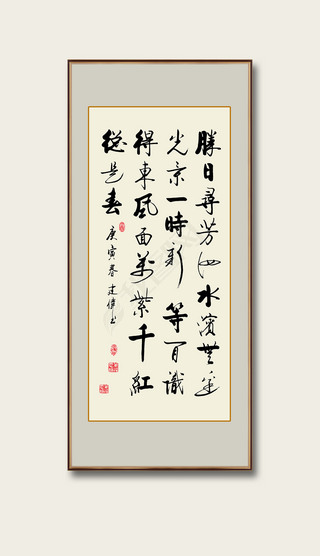 勝日尋芳泗水濱無邊
光景一時新等閒識
得東風面萬紫千紅
總是春
庚寅春建偉书